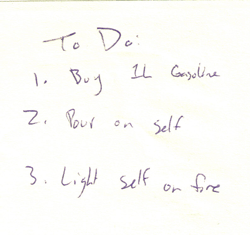 To Do:
1. Buy 1L Gasoline
2. Pour on self
3. Light self on fire